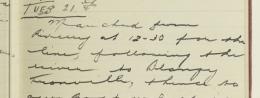 TUES 21st
Marched from
at 12-30 for the
line, following the
river to Blangy
Tronville, thence to